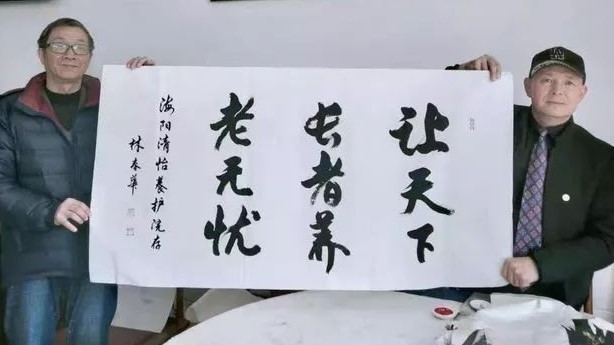 让天下
长者养
老无忧
海阳清怡养护院存
林春华